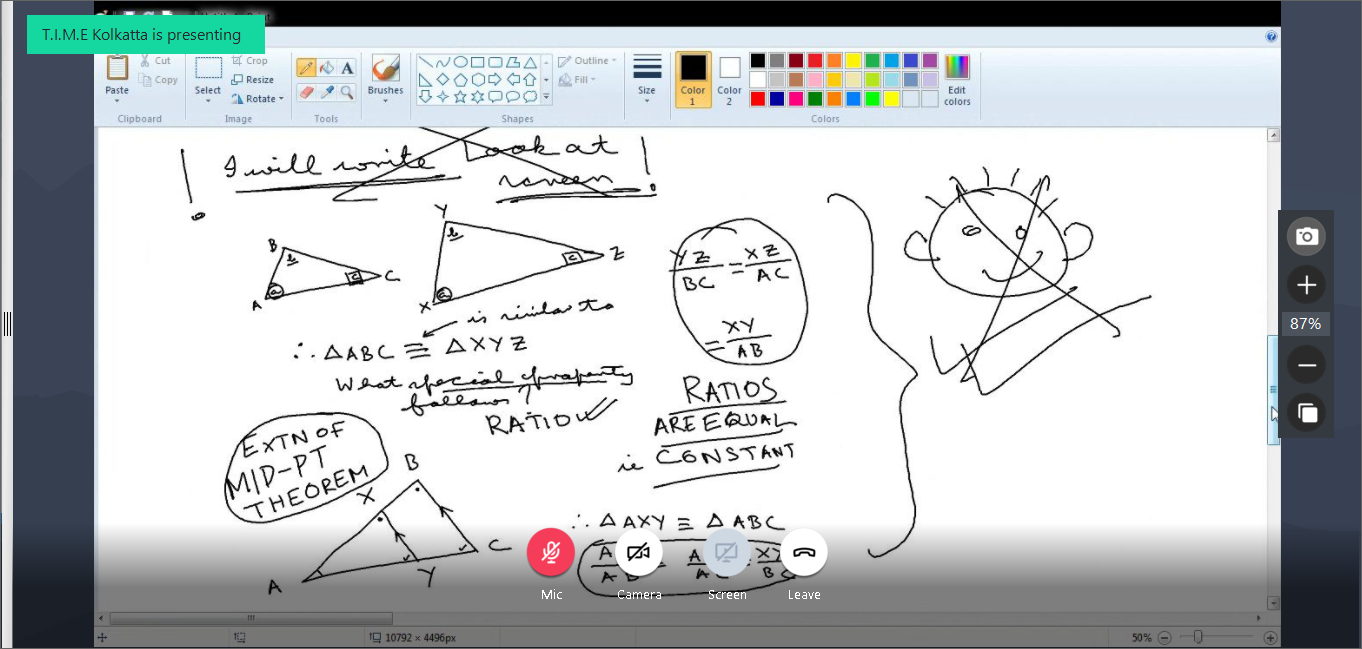 Untitled - Paint
T.I.M.E Kolkatta is presenting
Paste
Cut
Copy
Clipboard
Select
Crop
Resize
Rotate
Image
A
Tools
Brushes
Shapes
Outline
Fill
Size
Color 1
Color 2
Edit colors
Colors
I will write Look at
screen
B
b
A
a
c
C
Y
b
X
a
c
Z
YZ/BC = XZ/AC
= XY/AB
is similar to
∴ △ABC ≡ △XYZ
What special property
follows?
RATIO
RATIOS
ARE EQUAL
ie CONSTANT
EXTN OF
MID-PT
THEOREM
B
X
A
Y
C
∴ △AXY ≡ △ABC
XY
BC
Mic
Camera
Screen
Leave
87%
10792 × 4496px
50%